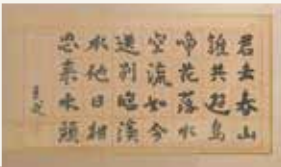 君去春山
誰共遊鳥
啼花落水
空流如今
送别臨溪
水他日相
思来水頭